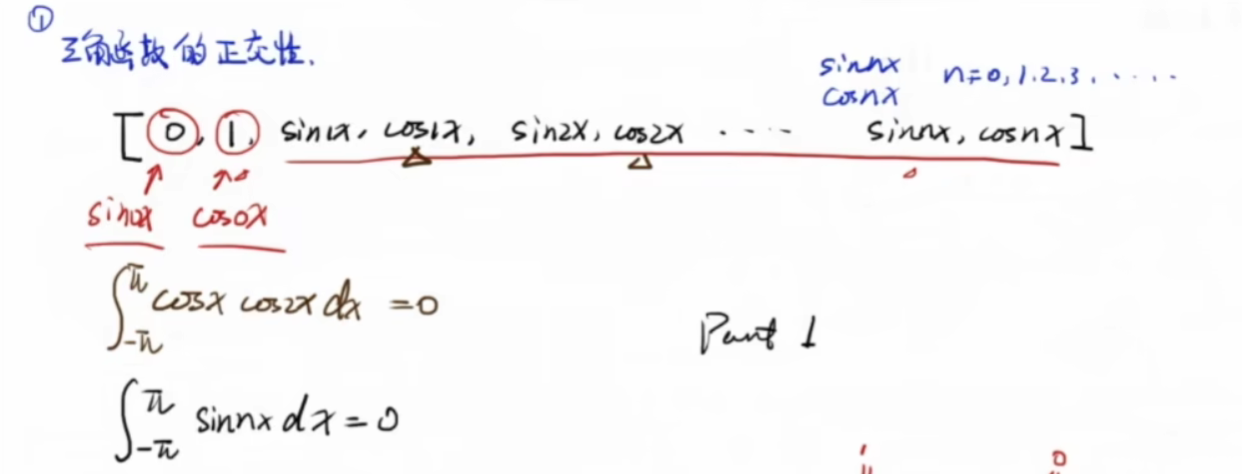 ① 三角函数的正交性.
sinnx n=0,1.2.3,.....
cosnx
[0, 1, sin1x, cos1x, sin2x, cos2x .... sinnx, cosnx]
sin0x cos0x
∫_{-π}^{π} cosx cos2x dx =0
Part 1
∫_{-π}^{π} sinnx dx=0